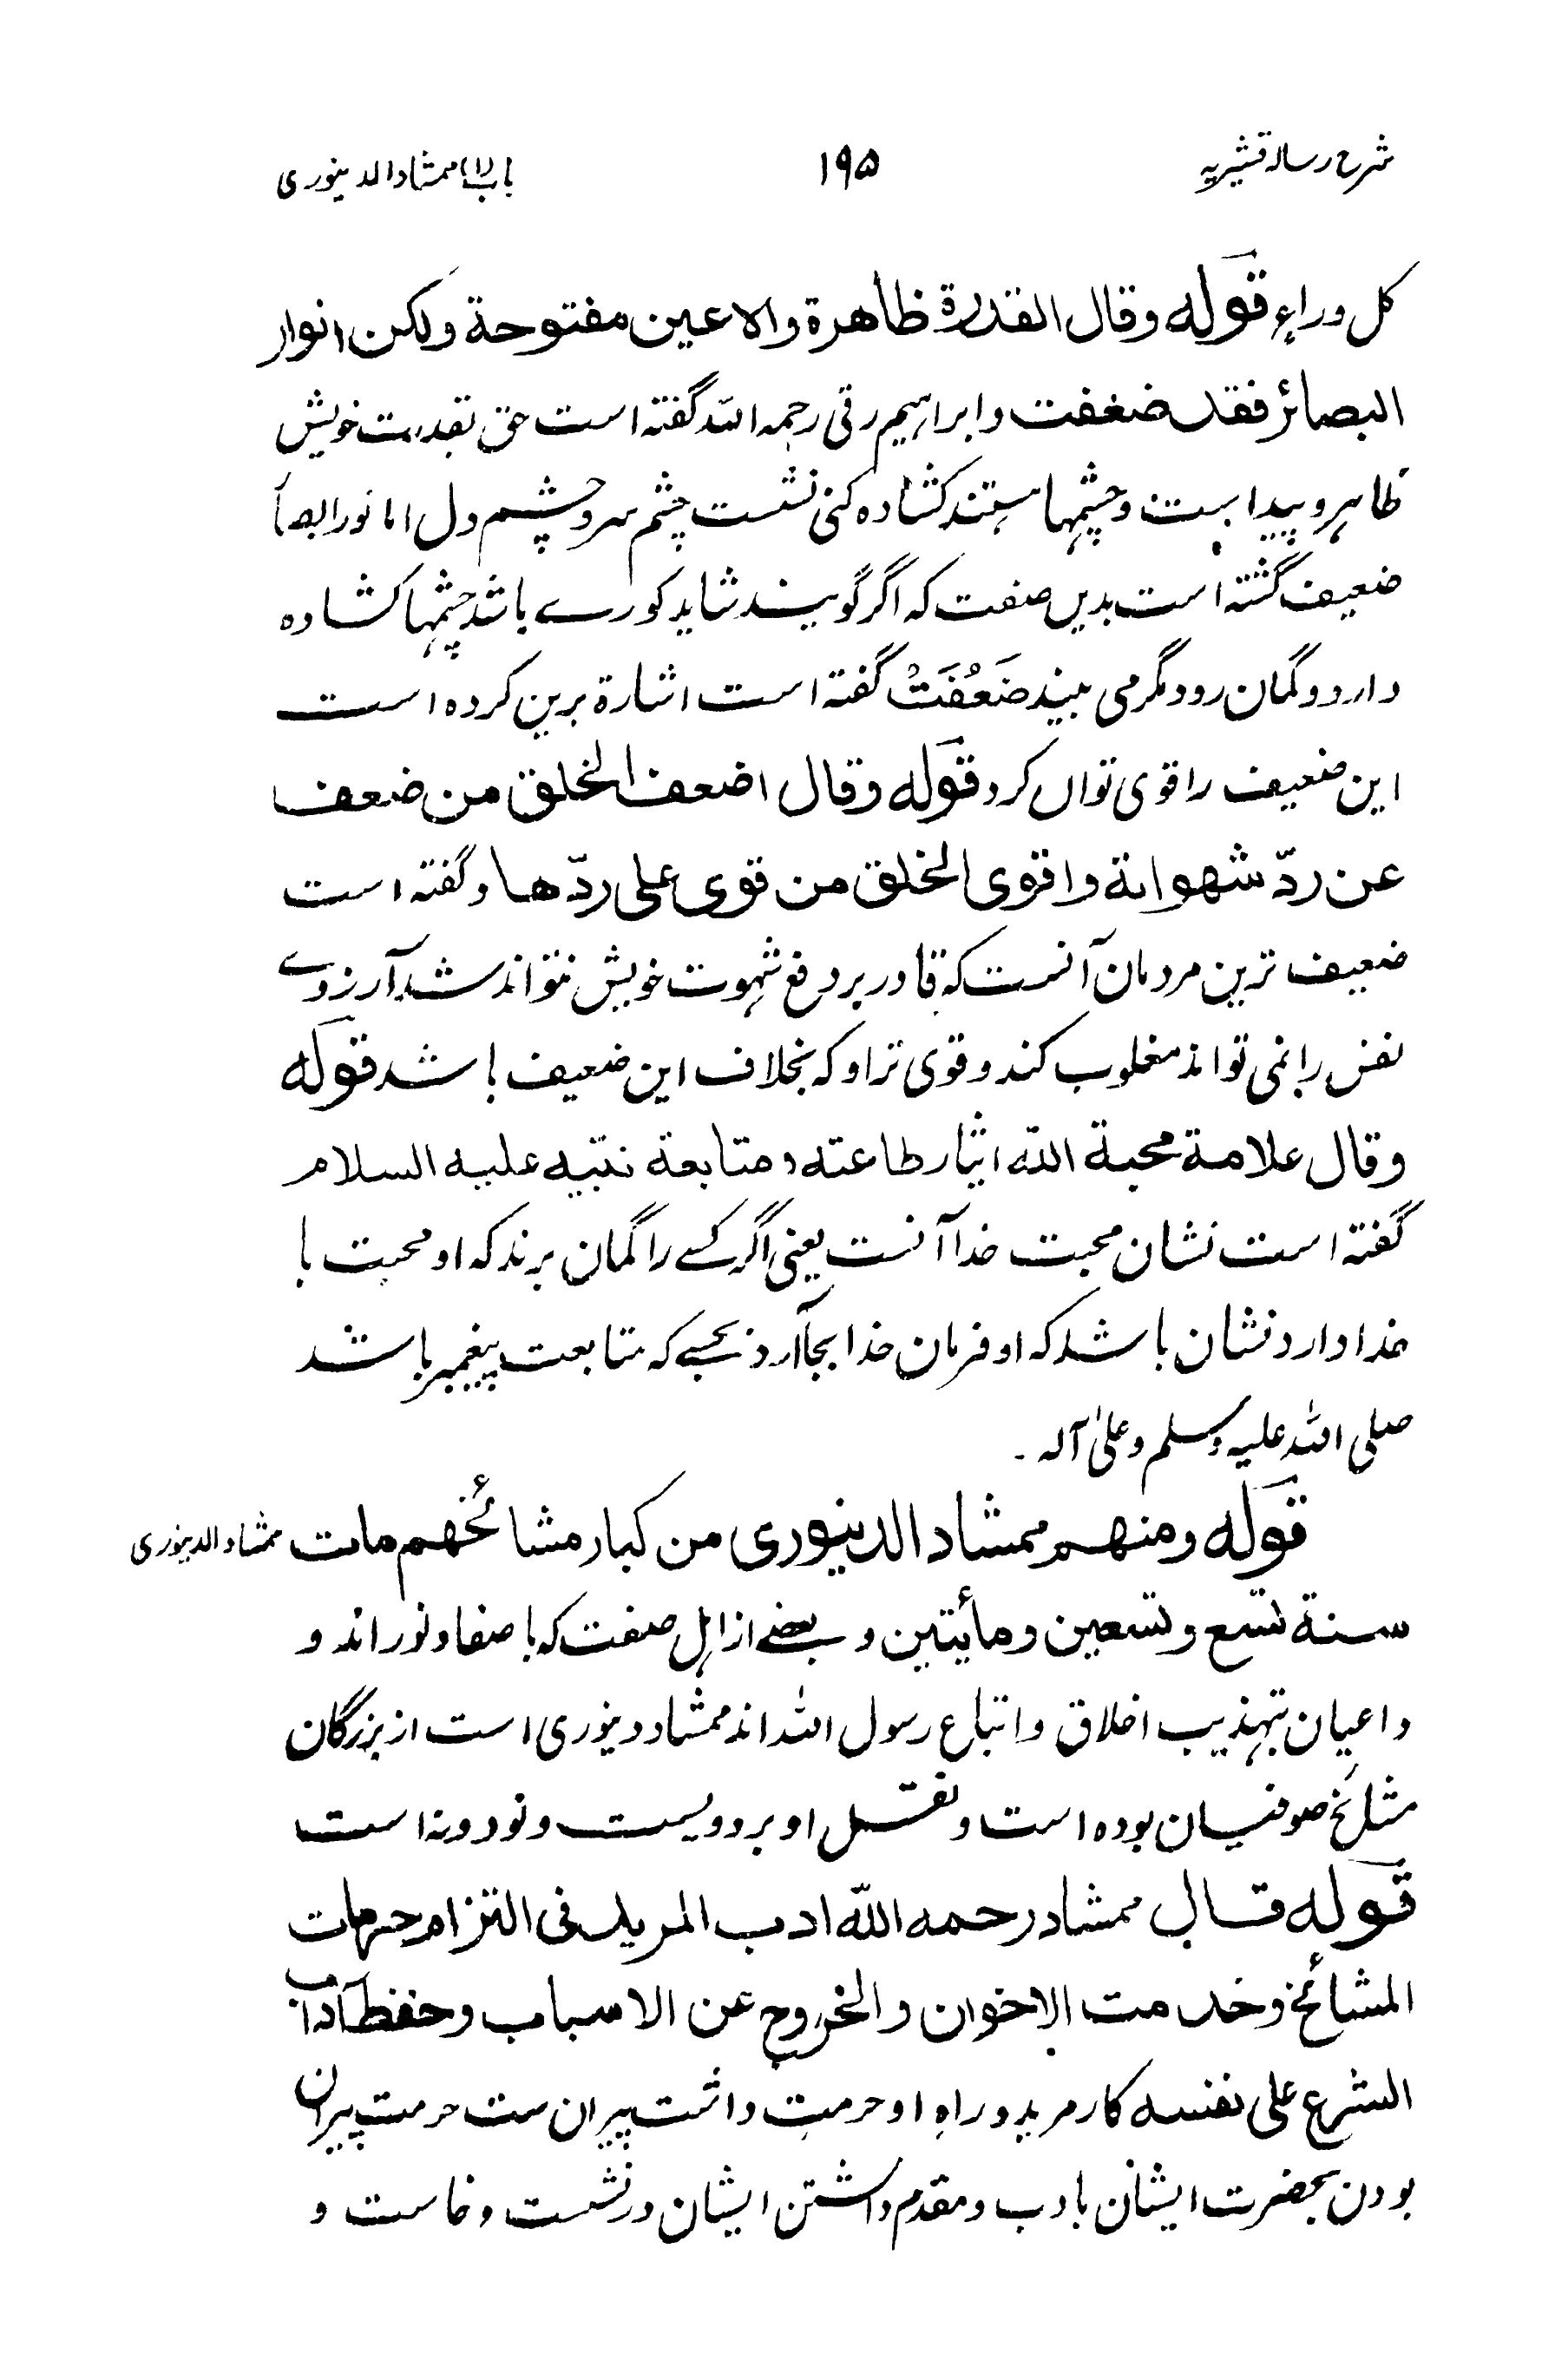 شرح رسالہ قشیریہ
۱۹۵
باب(۱) ممشاد الدینوری
کل وراء قوله وقال القدرة ظاهرة والاعین مفتوحة ولکن انوار
البصائر فقد ضعفت وابراہیم رقی رحمہ اللہ گفتہ است حق بقدرت خویش
ظاہر و پیدا است و چشمہا ہستند کشادہ کنی نشست چشم سر و چشم دل اما نور ابصار
ضعیف گشتہ است بدیں صفت کہ اگر گویند شاید کورے باشد چشمہا کشادہ
دارد و گمان رود مگر می بیند ضَعُفَتْ گفتہ است اشارۃ برین کردہ است
این ضعیف را قوی تواں کرد قوله وقال اضعف الخلق من ضعف
عن ردّ شهواته واقوی الخلق من قوی علی ردّها و گفتہ است
ضعیف ترین مردمان آنست کہ قادر بر دفع شہوت خویش نتواند شد آرزوے
نفس را نمی تواند مغلوب کند و قوی تر او کہ بخلاف این ضعیف باشد قوله
وقال علامة محبة اللہ ایثار طاعته و متابعة نبیه علیه السلام
گفتہ است نشان محبت خدا آنست یعنی اگر کسے را گمان برند کہ او محبت با
خدا دارد نشان باشد کہ او فرمان خدا بجا آرد بحسبے کہ متابعت پیغمبر باشد
صلی اللہ علیہ وسلم وعلیٰ آلہ ۔
قوله ومنهم ممشاد الدینوری من کبار مشائخهم مات
ممشاد الدینوری
سنة تسع وتسعین ومأیتین و بعضے از اہل صفت کہ با صفا و نور اند و
داعیان تہذیب اخلاق و اتباع رسول اللہ اند ممشاد دینوری است از بزرگان
مشائخ صوفیان بودہ است و نقل او بر دویست و نود و نہ است
قوله قال ممشاد رحمه اللہ ادب المرید فی التزام حرمات
المشائخ وخدمت الاخوان والخروج عن الاسباب وحفظ آداب
الشرع علی نفسه کار مرید و راہ او حرمت داشت پیران ست حرمت پیران
بودن بحضرت ایشان بادب و مقدم داشتن ایشان در نشست و خاست و